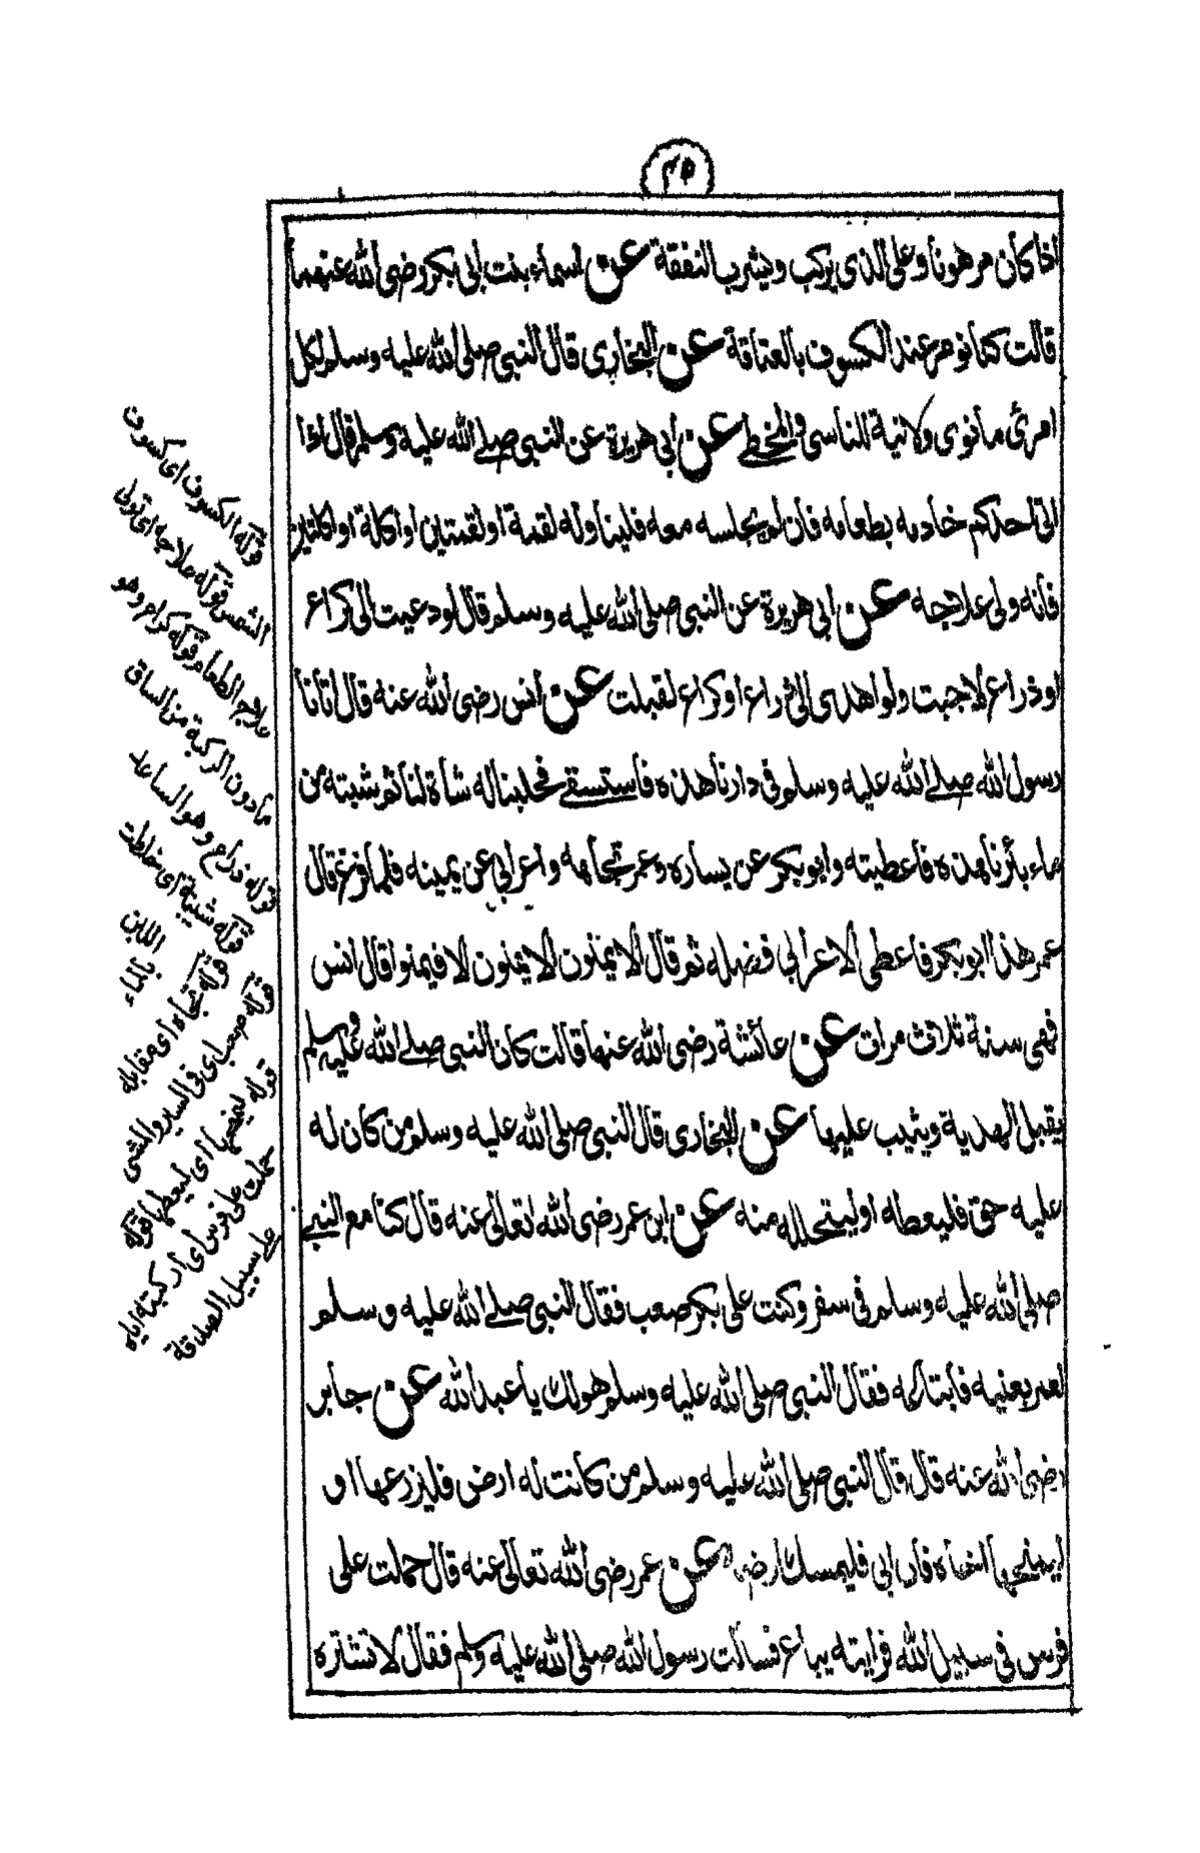 ٣٥
اذا كان مرهونا وعلى الذى يركب ويشرب النفقة عن اسماء بنت ابى بكر رضى الله عنهما
قالت كنا نومر عند الكسوف بالعتاقة عن البخارى قال النبى صلى الله عليه وسلم لكل
امرئ ما نوى ولا نية للناسى والمخطى عن ابى هريرة عن النبى صلى الله عليه وسلم قال اذا
اتى احدكم خادمه بطعامه فان لم يجلسه معه فليناوله لقمة او لقمتين او اكلة او اكلتين
فانه ولى علاجه عن ابى هريرة عن النبى صلى الله عليه وسلم قال لو دعيت الى كراع
او ذراع لاجبت ولو اهدى الى ذراع او كراع لقبلت عن انس رضى الله عنه قال اتانا
رسول الله صلى الله عليه وسلم فى دارنا هذه فاستسقى فحلبنا له شاة لنا ثم شبته من
ماء بئرنا هذه فاعطيته وابو بكر عن يساره وعمر تجاهه واعرابى عن يمينه فلما فرغ قال
عمر هذا ابو بكر فاعطى الاعرابى فضله ثم قال الايمنون الايمنون الا فيمنوا قال انس
فهى سنة ثلاث مرات عن عائشة رضى الله عنها قالت كان النبى صلى الله عليه وسلم
يقبل الهدية ويثيب عليها عن البخارى قال النبى صلى الله عليه وسلم من كان له
عليه حق فليعطه او ليتحلله منه عن ابن عمر رضى الله تعالى عنه قال كنا مع النبى
صلى الله عليه وسلم فى سفر وكنت على بكر صعب فقال النبى صلى الله عليه وسلم
لعمر بعنيه فابتاعه فقال النبى صلى الله عليه وسلم هو لك يا عبد الله عن جابر
رضى الله عنه قال قال النبى صلى الله عليه وسلم من كانت له ارض فليزرعها او
ليمنحها اخاه فان ابى فليمسك ارضه عن عمر رضى الله تعالى عنه قال حملت على
فرس فى سبيل الله فرايته يباع فسالت رسول الله صلى الله عليه وسلم فقال لا تشتره
قوله الكسوف اى كسوف
الشمس قوله علاجه اى تولى
علاج الطعام قوله كراع وهو
ما دون الركبة من الساق
قوله ذراع وهو الساعد
قوله شبته اى خلطت
اللبن
بالماء
قوله تجاه اى مقابله
قوله صعب اى فى السير والمشى
قوله ليمنحها اى ليعطها قوله
حملت على فرس اى اركبته اياه
على سبيل الصدقة